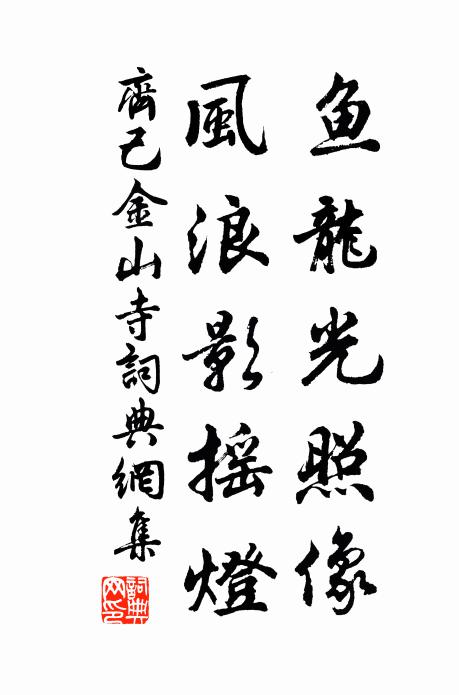 鱼龍光照像
風浪影摇燈
齊己金山寺詞典網集
詞典網印